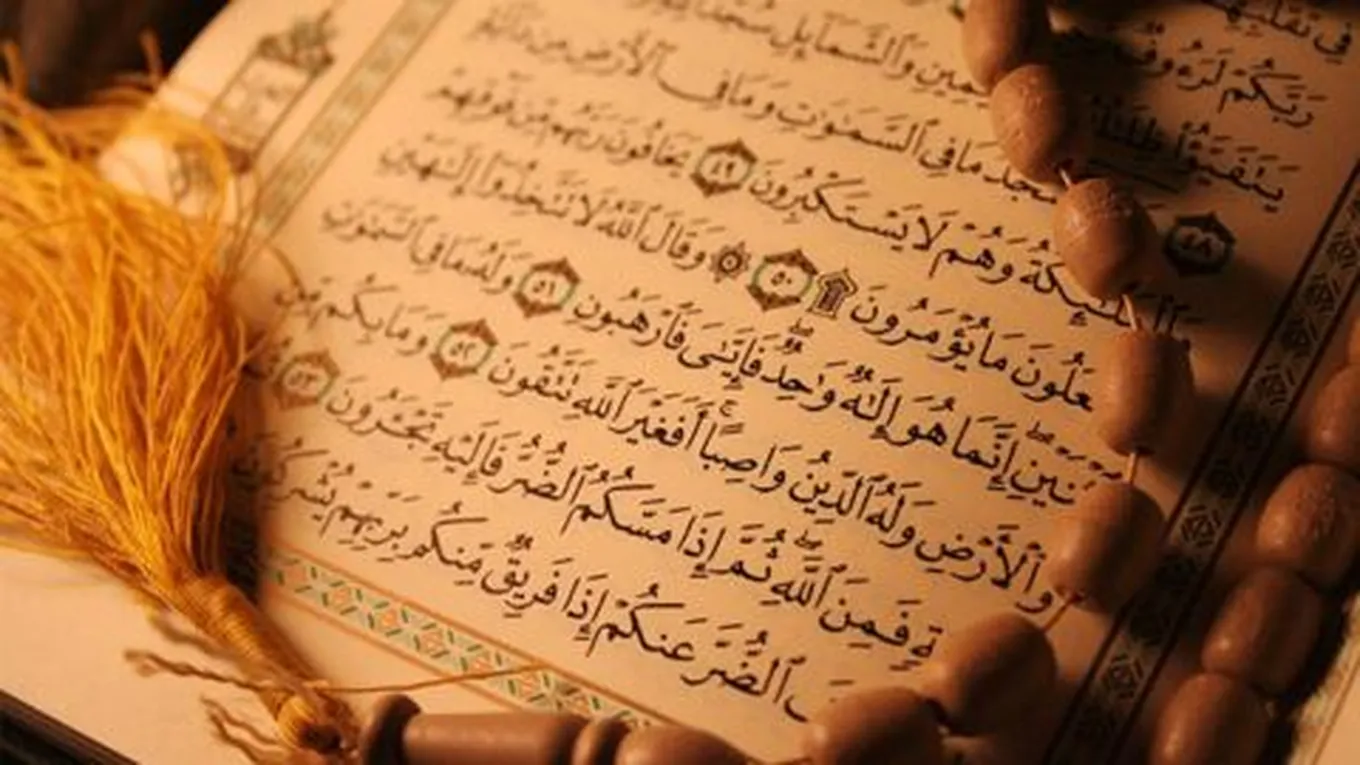 فِى
رَبَّكُمْ لَرَءُوفٌ
يَتَفَيَّؤُا۟ ظِلَٰلُهُ ٱلْيَمِينِ وَٱلشَّمَآئِلِ سُجَّدًا
٤٨ يَسْجُدُ مَا فِى ٱلسَّمَٰوَٰتِ وَمَا فِى ٱلْأَرْضِ مِن دَآبَّةٍ
وَٱلْمَلَٰٓئِكَةُ وَهُمْ لَا يَسْتَكْبِرُونَ ٤٩ يَخَافُونَ رَبَّهُم مِّن فَوْقِهِمْ
عَلُونَ مَا يُؤْمَرُونَ ۩ ٥٠ ۞ وَقَالَ ٱللَّهُ لَا تَتَّخِذُوٓا۟ إِلَٰهَيْنِ
ٱثْنَيْنِ إِنَّمَا هُوَ إِلَٰهٌ وَٰحِدٌ فَإِيَّٰىَ فَٱرْهَبُونِ ٥١ وَلَهُۥ مَا فِى ٱلسَّمَٰوَٰتِ
وَٱلْأَرْضِ وَلَهُ ٱلدِّينُ وَاصِبًا أَفَغَيْرَ ٱللَّهِ تَتَّقُونَ ٥٢ وَمَا بِكُم مِّن
ةٍ فَمِنَ ٱللَّهِ ثُمَّ إِذَا مَسَّكُمُ ٱلضُّرُّ فَإِلَيْهِ تَجْـَٔرُونَ ٥٣
ٱلضُّرَّ عَنكُمْ إِذَا فَرِيقٌ مِّنكُم بِرَبِّهِمْ يُشْرِكُونَ